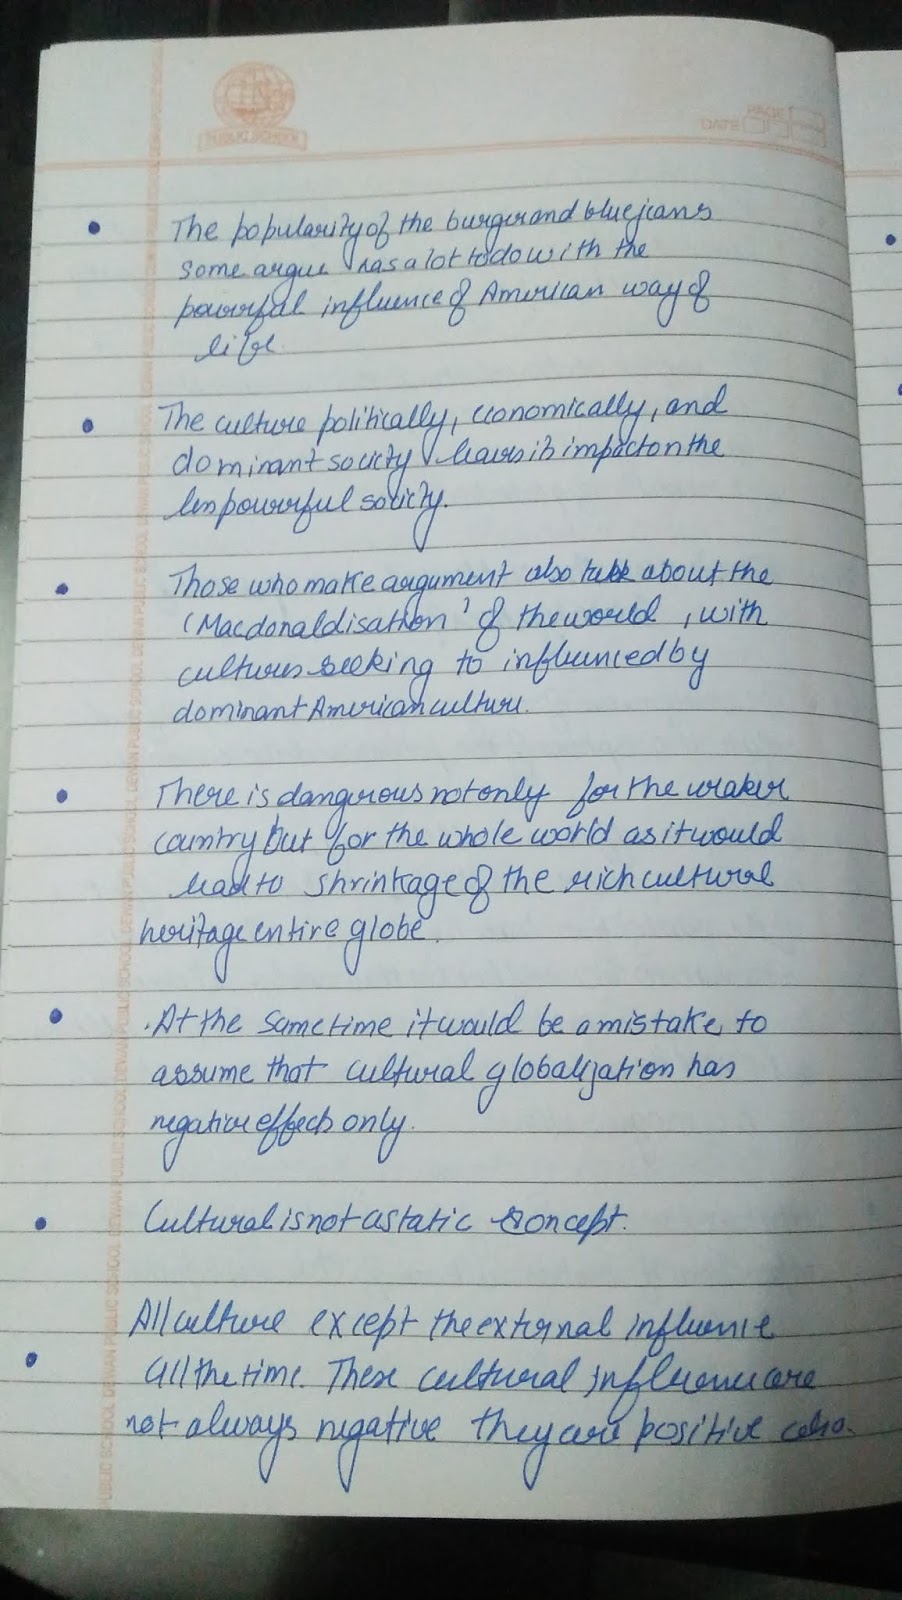 PUBLIC SCHOOL
PAGE
DATE
DEWAN PUBLIC SCHOOL DEWAN PUBLIC SCHOOL DEWAN PUBLIC SCHOOL
• The popularity of the burger and blue jeans
some argue has a lot to do with the
powerful influence of American way of
life.
• The culture politically, economically, and
dominant society leaves it impact on the
less powerful society.
• Those who make argument also talk about the
'Macdonaldisation' of the world, with
cultures seeking to influenced by
dominant American culture.
• There is dangerous not only for the weaker
country but for the whole world as it would
lead to shrinkage of the rich cultural
heritage entire globe.
• .At the same time it would be a mistake to
assume that cultural globalization has
negative effects only.
• Cultural is not a static concept.
• All culture except the external influence
all the time. These cultural influence are
not always negative they are positive also.